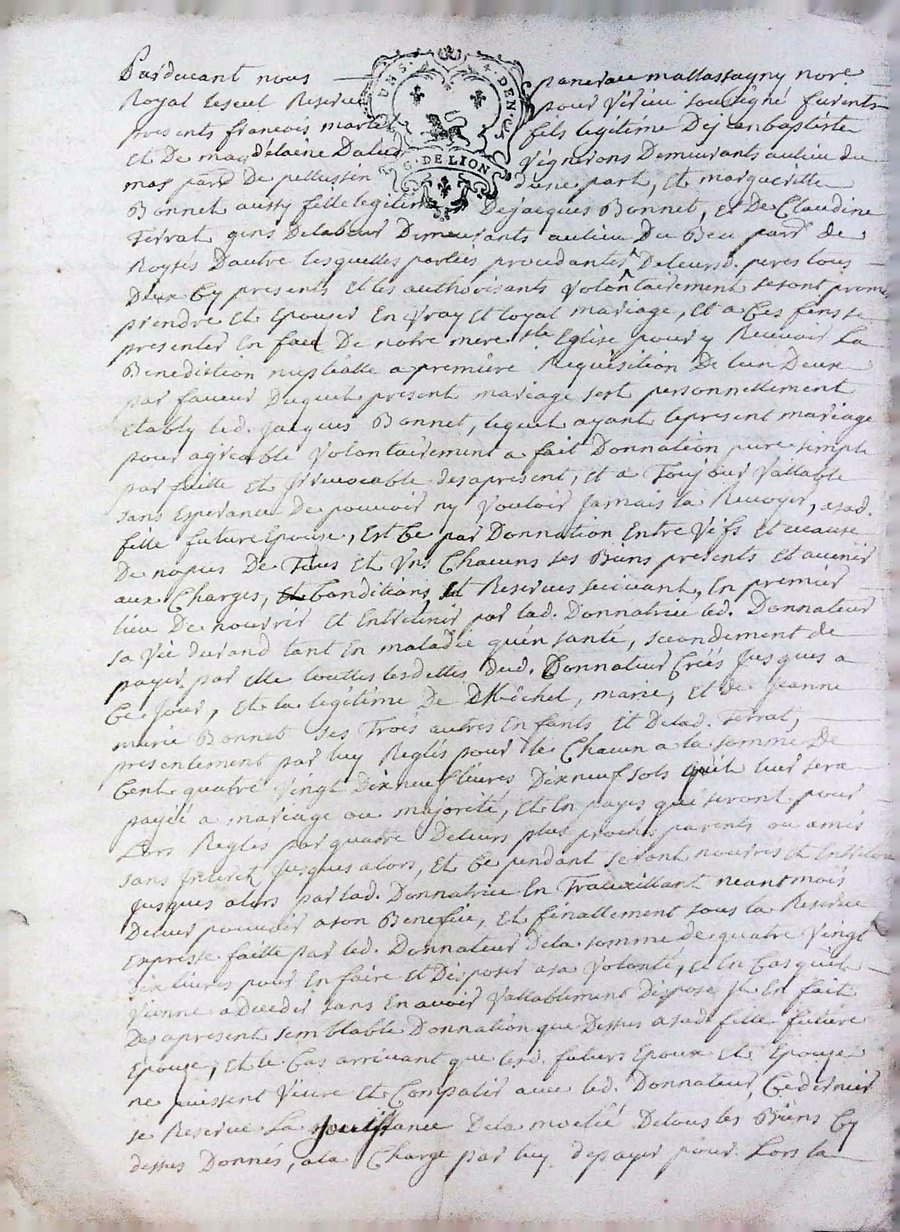 Pardevant nous panerau mattassagny nore
UN S. DEN. G. DE LION
Royal seul Reservé pour Virieu soussigné furents
presents francois martel fils legitime Dejeanbaptiste
et De magdelaine Vignerons Demeurants aulieu du
mas parr De pellussin d'une part, et margueritte
Bonnet aussy fille legitime Dejacques Bonnet, et De Claudine
Ferrat gens Delabeur Demeurants aulieu Du Beu parr de
Royses Dautre lesquelles parties procedantes Deleursd. peres tous
Deux Cy presents et les authorisants volontairement se sont promis
prendre et Epouser En vray et loyal mariage, et a Ces fins se
presenter En face De notre mere ste Eglise pour y Recevoir La
Benediction nuptialle a premiere Requisition De lun Deux
par faveur Duquel present mariage sest personnellement
Etably led. Jacques Bonnet, lequel ayant lepresent mariage
pour agreable volontairement a fait Donnation pure simple
parfaitte et Irrevocable desapresent, et a Toujour vallable
sans Esperance De pouvoir ny vouloir Jamais la Revoquer, asad.
fille future Epouse, Est Ce par Donnation Entre vifs et acause
De nopces De Tous et uns Chacuns ses Biens presents et avenir
aux Charges, Conditions et Reserves suivant, En premier
lieu De nourrir et Entretenir par lad. Donnatrice led. Donnateur
sa vie durand tant En maladie quen santé, secondement de
payer par elle touttes les dettes dud. Donnateur Créés Jusques a
Ce Jour, et la legitime De Michel, marie, et de Jeanne
marie Bonnet ses Trois autres Enfants et Delad. Ferrat,
presentement par luy Reglés pour le Chacun a la somme De
Cent quatre vingt Dixneuf livres Dixneuf sols quil leur sera
payée a mariage ou majorité, et En payes qui seront pour
Lors Reglés par quatre Deleurs plus proches parents ou amis
sans Interet Jusques alors, et Ce pendant seront nourris et Entretenu
jusques alors par lad. Donnatrice En Travaillant neantmois
Deleur pouvoir a son Benefice, et finallement sous la Reserve
Expresse faitte par led. Donnateur Dela somme de quatre vingt
dix livres pour En faire et Disposer a sa volonté, et En Cas quil
vienne adeceder sans En avoir vallablement Disposé Il En fait
Desapresent semblable Donnation que Dessus asad. fille future
Epouse, et le Cas arrivant que lesd. futurs Epoux et Epouse
ne puissent vivre et Compatir avec led. Donnateur, Cedernier
se Reserve La Jouissance Dela moetié Detous les Biens Cy
dessus Donnés, ala Charge par luy depayer pour Lors la